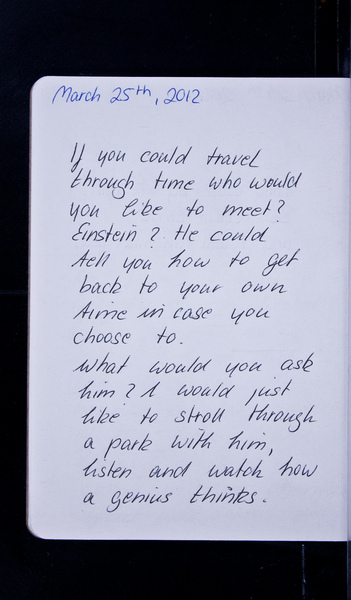 March 25th, 2012
If you could travel
through time who would
you like to meet?
Einstein? He could
tell you how to get
back to your own
time in case you
choose to.
What would you ask
him? I would just
like to stroll through
a park with him,
listen and watch how
a genius thinks.